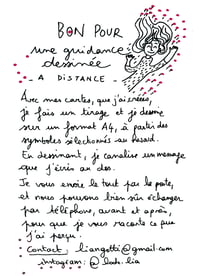 BON POUR
une guidance
dessinée
- A DISTANCE -
Avec mes cartes, que j'ai créées,
je fais un tirage et je dessine
sur un format A4, à partir des
symboles sélectionnés au hasard.
En dessinant, je canalise un message
que j'écris au dos.
Je vous envoie le tout par la poste,
et nous pouvons bien sûr échanger
par téléphone, avant et après,
pour que je vous raconte ce que
j'ai perçu.
Contact : liangetti@gmail.com
instagram: @